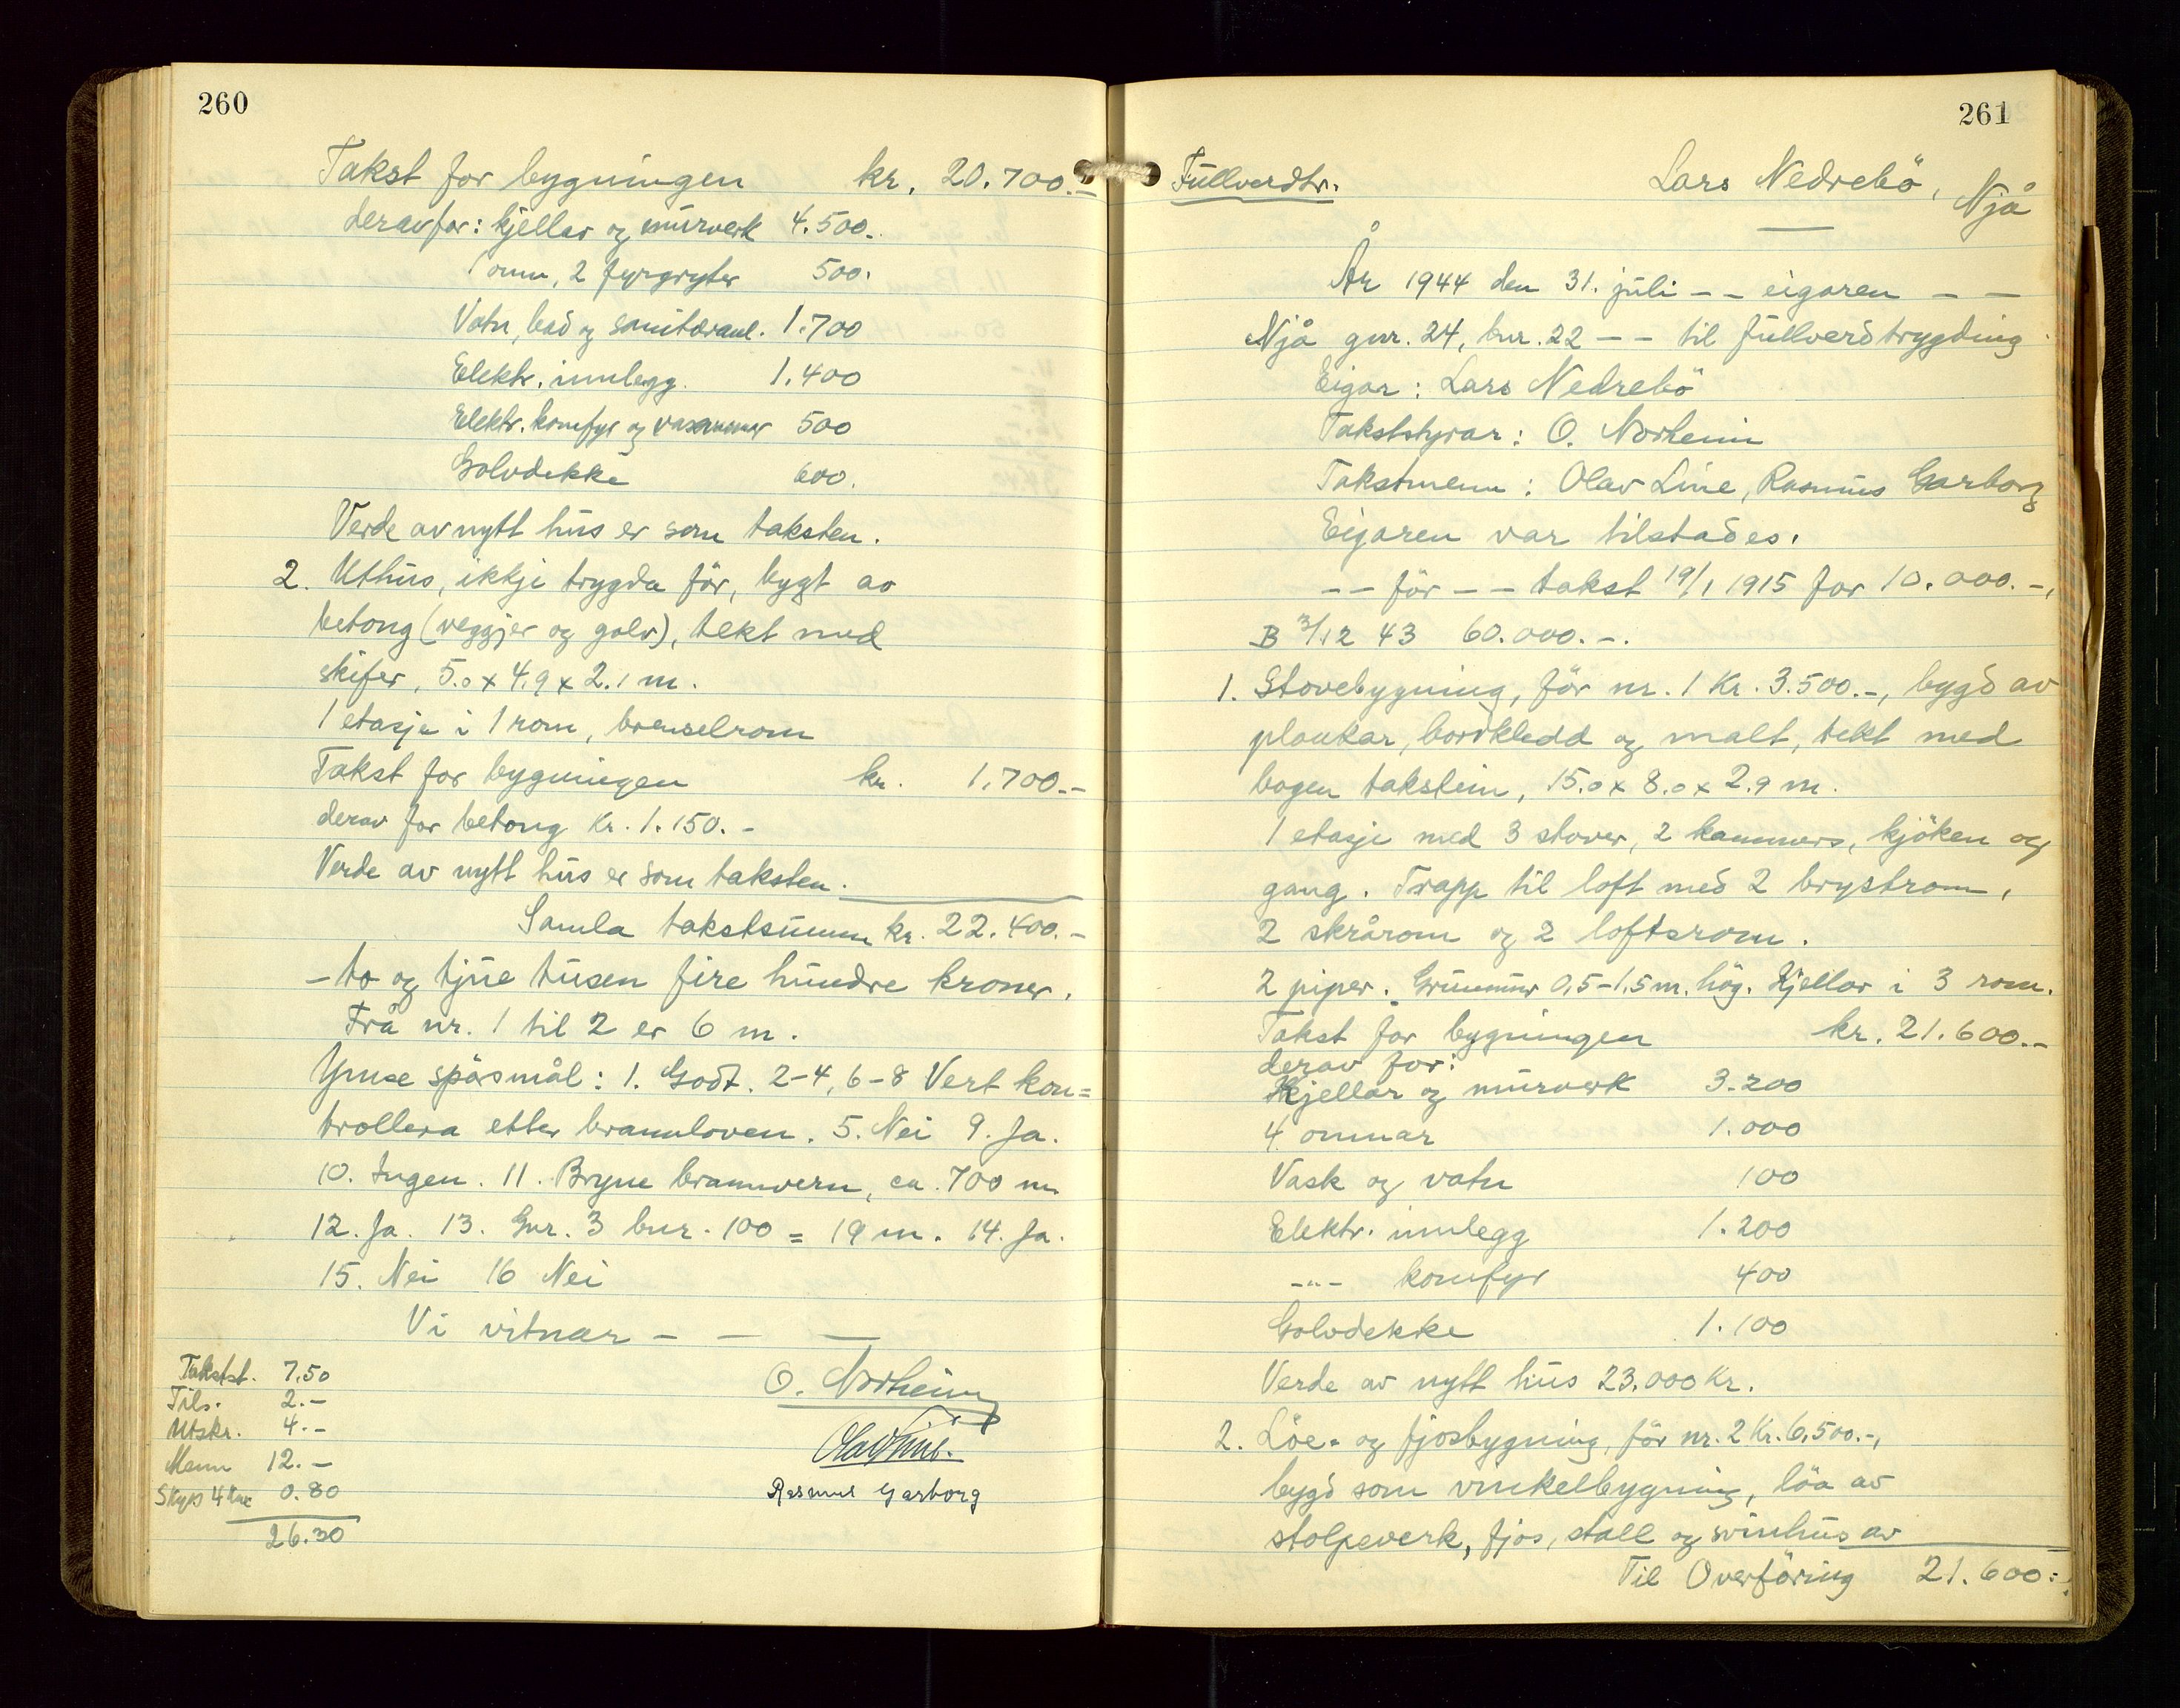 260
Takst for bygningen kr. 20.700.-
derav for: kjellar og murverk 4.500.-
1 omn, 2 fyrgryter 500.
Vatn, bad og sanitæranl. 1.700
Elektr. innlegg. 1.400
Elektr. komfyr og 500
Golvdekke 600.
Verde av nytt hus er som taksten.
2. Uthus, ikkje trygda för, bygt av
betong (veggjer og golv), tekt med
skifer, 5.0 x 4.9 x 2.1 m.
1 etasje i 1 rom, brenselrom
Takst for bygningen kr. 1.700.-
derav for betong kr. 1.150.-
Verde av nytt hus er som taksten.
Samla takstsumm kr. 22.400.-
- to og tjue tusen fire hundre kroner.
Frå nr. 1 til 2 er 6 m.
Ymse spörsmål: 1. Godt. 2-4, 6-8 Vert kon=
trollera etter brannloven. 5. Nei 9. Ja.
10. Ingen. 11. Bryne brannvern, ca. 700 m.
12. Ja. 13. Gnr. 3 bnr. 100 = 19 m. 14. Ja.
15. Nei 16 Nei
Vi vitnar - - -
Takstst. 7.50
Tils. 2.-
Utskr. 4.-
Menn 12.-
Skyss 4 km 0.80
26.30
O. Norheim
Olav Line.
Rasmus Garborg
261
Fullverdtr. Lars Nedrebö, Njå
År 1944 den 31. juli - - eigaren - -
Njå gnr. 24, bnr. 22 - - til fullverdtrygding
Eigar: Lars Nedrebö
Takststyrar: O. Norheim
Takstmenn: Olav Line, Rasmus Garborg
Eigaren var tilstades.
- - för - - takst 19/1 1915 for 10.000.-,
B 3/12 43 60.000.-.
1. Stovebygning, för nr. 1 Kr. 3.500.-, bygd av
plankar, bordkledd og malt, tekt med
bogen takstein, 15.0 x 8.0 x 2.9 m.
1 etasje med 3 stover, 2 kammers, kjöken og
gang. Trapp til loft med 2 brystrom,
2 skrårom og 2 loftsrom.
2 piper. Grunnmur 0,5-1,5 m. hög. Kjellar i 3 rom.
Takst for bygningen kr. 21.600.-
derav for:
Kjellar og murverk 3.200
4 omnar 1.000
Vask og vatn 100
Elektr. innlegg 1.200
-"- komfyr 400
Golvdekke 1.100
Verde av nytt hus 23.000 Kr.
2. Löe- og fjosbygning, för nr. 2 Kr. 6.500.-,
bygd som vinkelbygning, löa av
stolpeverk, fjos, stall og svinhus av
Til Overföring 21.600:-